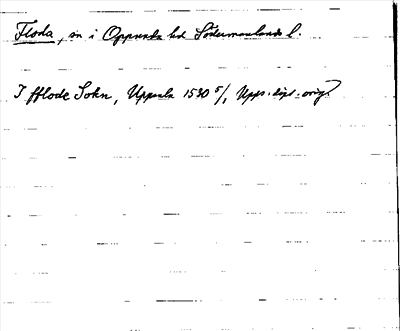 Floda, sn i Oppunda hd Södermanlands l.
I fflode Sokn, Uppsala 1530 5/, Upps. dipl. orig.